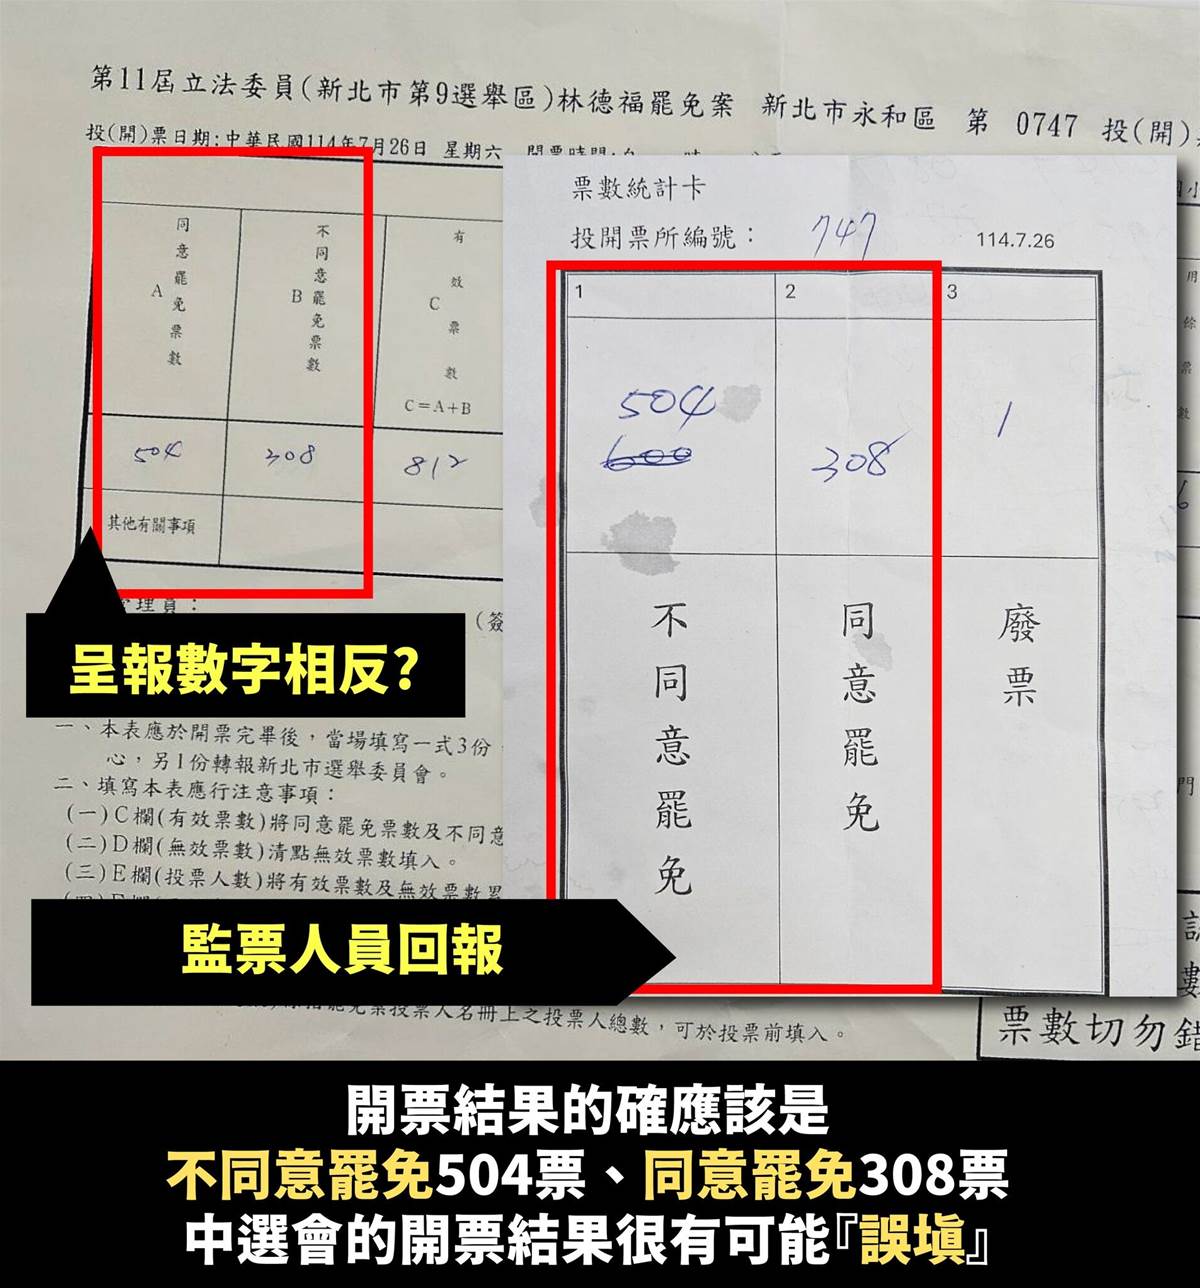 第11屆立法委員(新北市第9選舉區)林德福罷免案 新北市永和區 第 0747 投(開)
投(開)票日期:中華民國114年7月26日 星期六
同意罷免票數
A
不同意罷免票數
B
有效票數
C
C=A+B
504
308
812
其他有關事項
管理員：
(簽
呈報數字相反?
一、本表應於開票完畢後，當場填寫一式3份，
心，另1份轉報新北市選舉委員會。
二、填寫本表應行注意事項：
(一)C欄(有效票數)將同意罷免票數及不同意
(二)D欄(無效票數)清點無效票數填入。
(三)E欄(投票人數)將有效票數及無效票數累
票數統計卡
投開票所編號： 747 114.7.26
1 2 3
504
600
308
1
不同意罷免
同意罷免
廢票
監票人員回報
罷免案投票人名冊上之投票人總數，可於投票前填入。
票數切勿錯
開票結果的確應該是
不同意罷免504票、同意罷免308票
中選會的開票結果很有可能『誤塡』